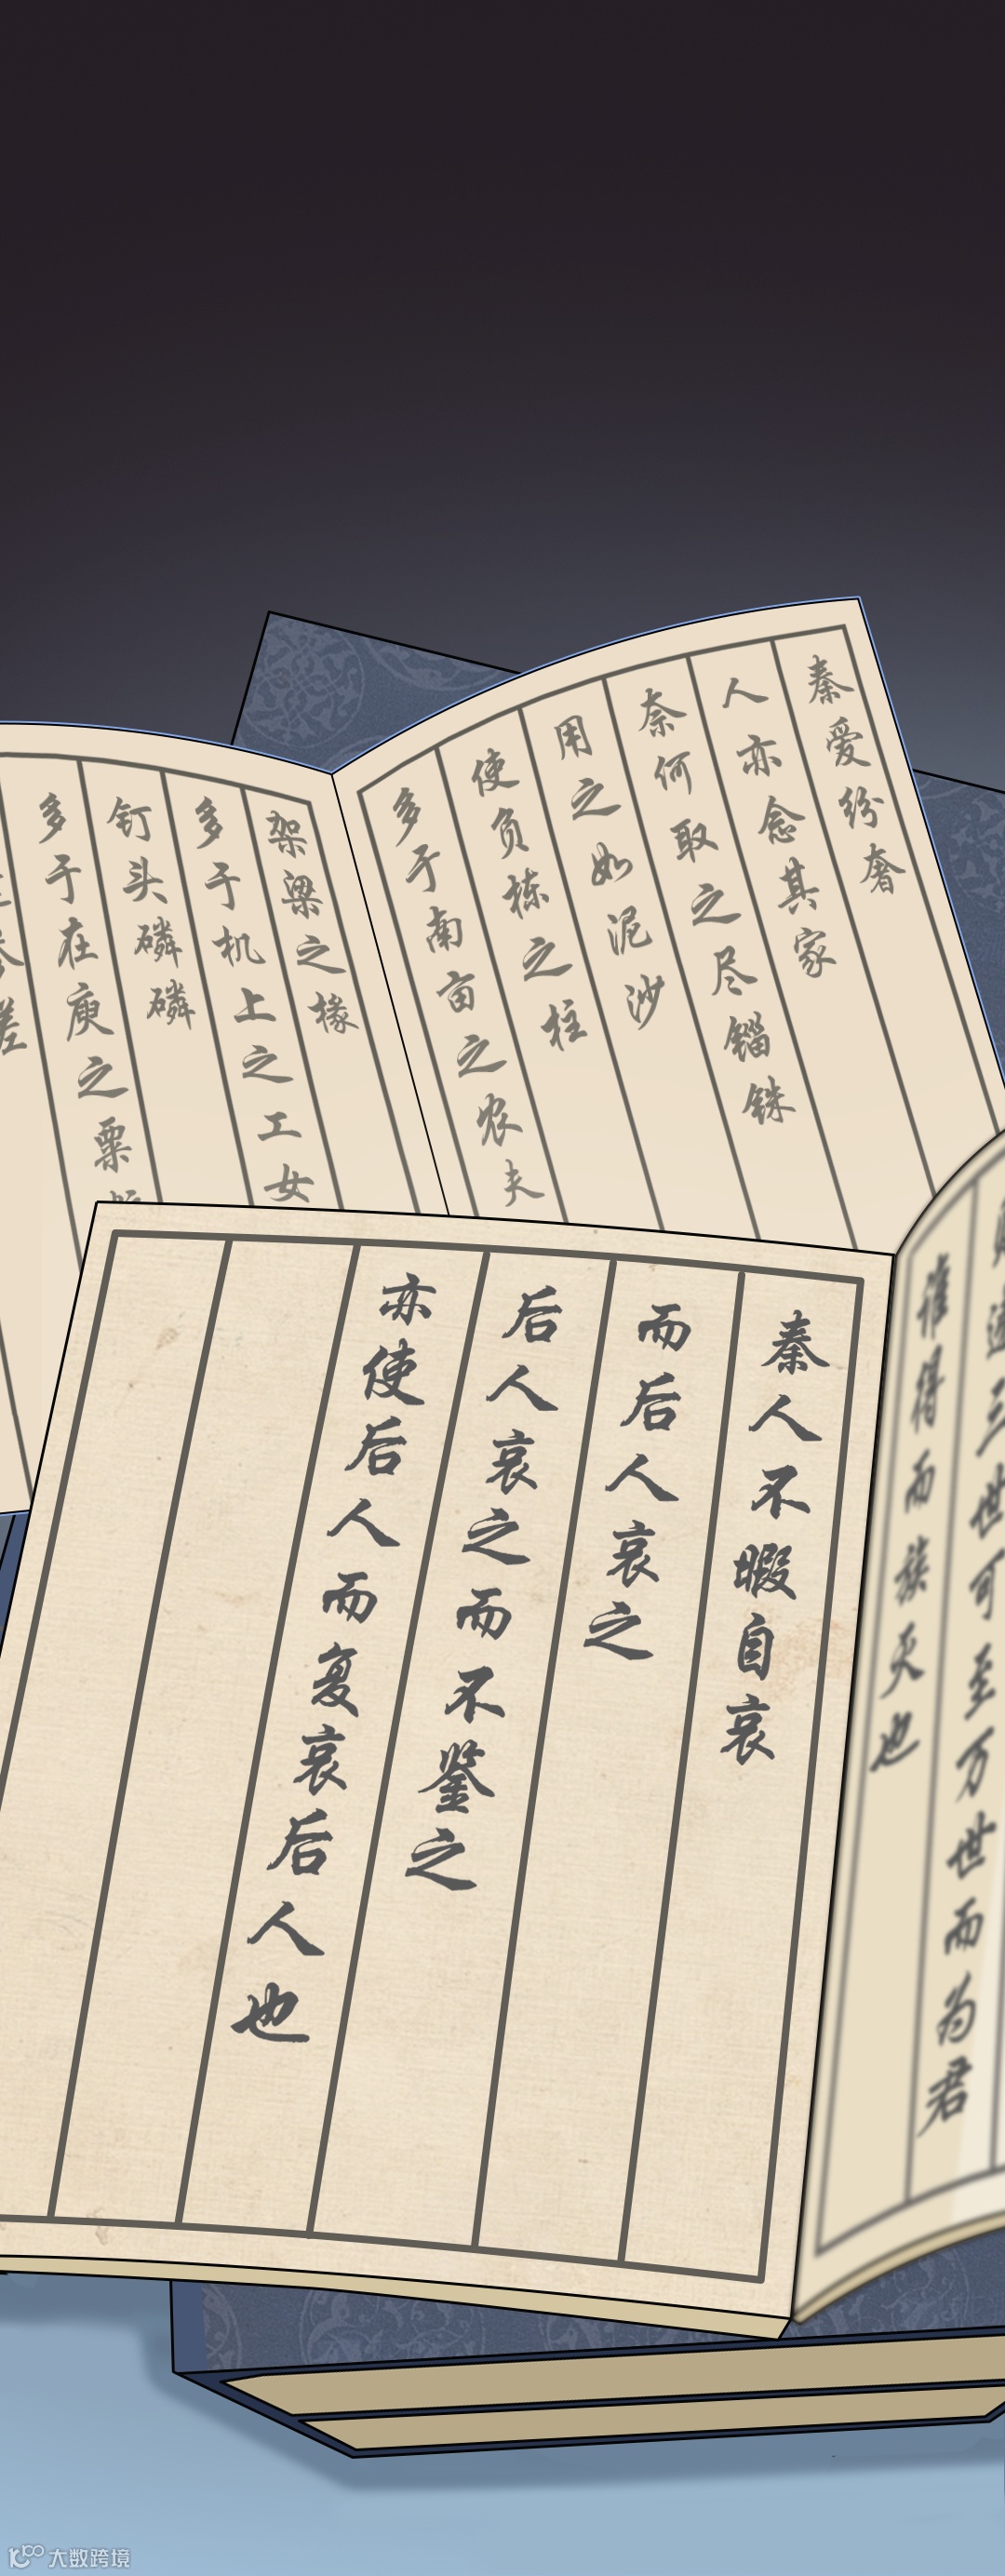 秦爱纷奢
人亦念其家
奈何取之尽锱铢
用之如泥沙
使负栋之柱
多于南亩之农夫
架梁之椽
多于机上之工女
钉头磷磷
多于在庾之粟粒
参差
递三世可至万世而为君
谁得而族灭也
秦人不暇自哀
而后人哀之
后人哀之而不鉴之
亦使后人而复哀后人也
大数跨境